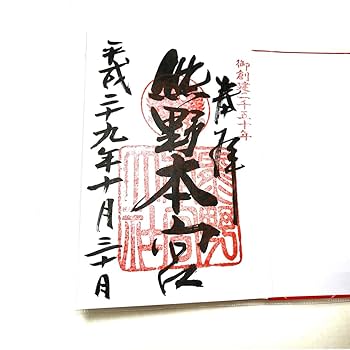 御創建二千五十年
奉拝
熊野本宮
平成二十九年十月三十日